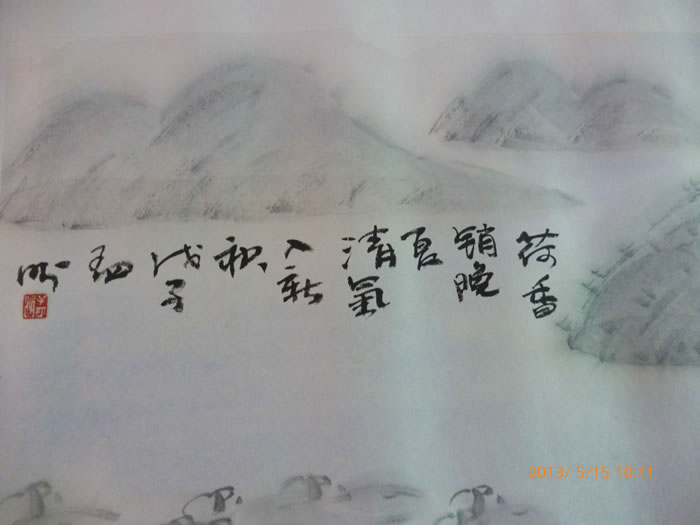 荷香
销晚
夏
清氣
入新
秋
戊子
2013/ 5/15 10:11